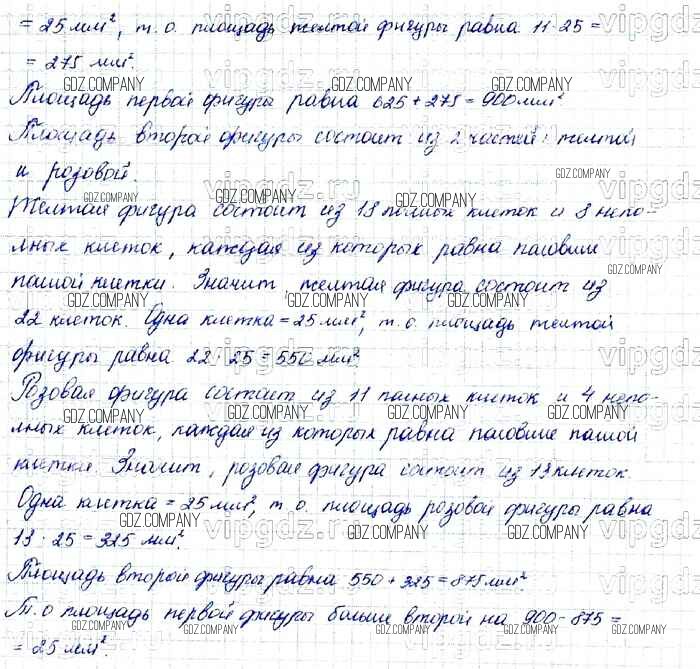 = 25 мм², т.о. площадь желтой фигуры равна 11·25 =
= 275 мм².
Площадь первой фигуры равна 625 + 275 = 900 мм²
Площадь второй фигуры состоит из 2 частей: желтой
и розовой.
Желтая фигура состоит из 18 полных клеток и 8 непо-
лных клеток, каждая из которых равна половине
полной клетки. Значит, желтая фигура состоит из
22 клеток. Одна клетка = 25 мм², т.о. площадь желтой
фигуры равна 22 · 25 = 550 мм².
Розовая фигура состоит из 11 полных клеток и 4 непо-
лных клеток, каждая из которых равна половине полной
клетки. Значит, розовая фигура состоит из 13 клеток.
Одна клетка = 25 мм², т.о. площадь розовой фигуры равна
13 · 25 = 325 мм².
Площадь второй фигуры равна 550 + 325 = 875 мм².
Т.о площадь первой фигуры больше второй на 900 - 875 =
= 25 мм².